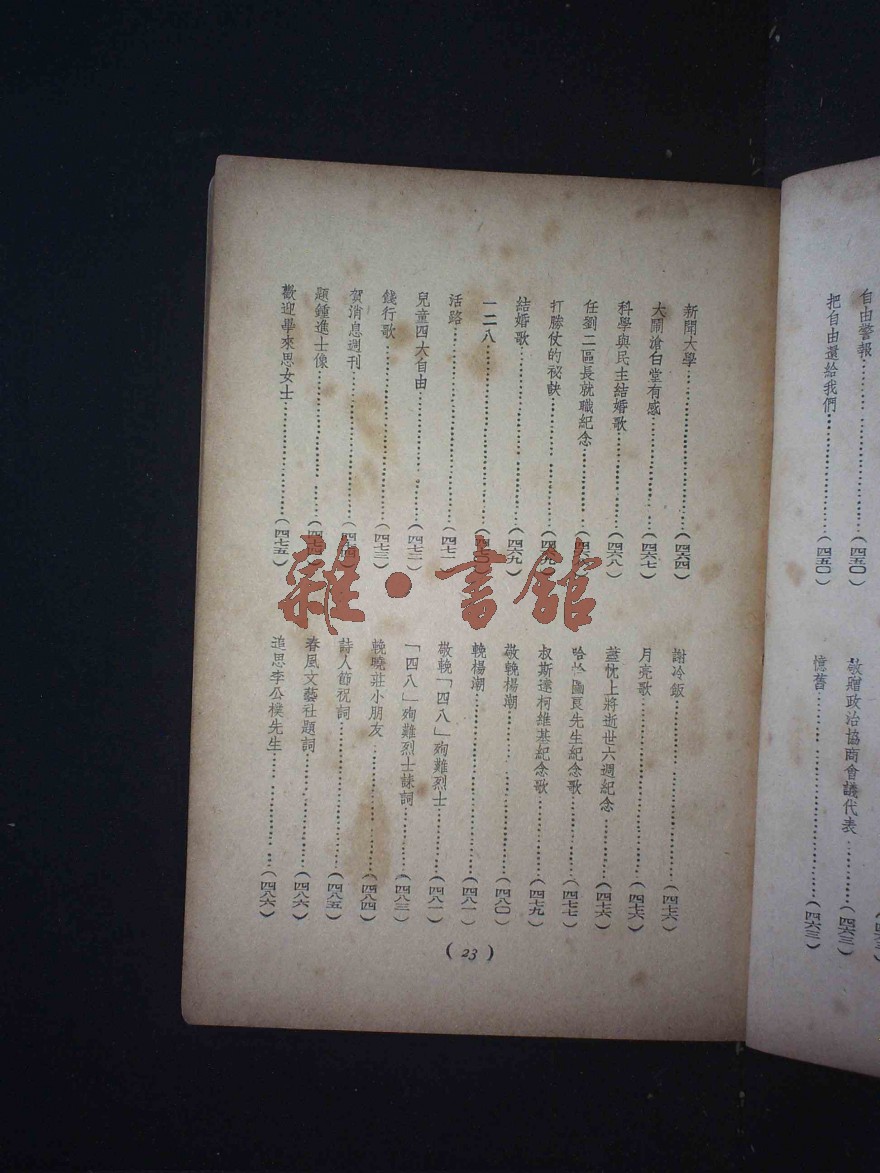 自由警報………………(四五〇)
把自由還給我們…………(四五〇)
敬贈政治協商會議代表………(四六三)
憶舊………………(四六三)
新聞大學………………(四六四)
大鬧滄白堂有感…………(四六七)
科學與民主結婚歌…………(四六八)
任劉二區長就職紀念…………
打勝仗的祕訣…………(四六九)
結婚歌………………(四六九)
一二八………………(四七〇)
活路………………(四七一)
兒童四大自由…………
餞行歌………………(四七三)
賀消息週刊…………(四七四)
題鍾進士像…………(四七四)
歡迎畢來思女士…………(四七五)
謝冷飯………………(四七六)
月亮歌………………(四七六)
蓋忱上將逝世六週紀念………(四七六)
國良先生紀念歌…………(四七七)
叔斯達柯維基紀念歌…………(四七九)
敬輓楊潮…………(四八〇)
輓楊潮………………(四八一)
敬輓「四八」殉難烈士………(四八一)
「四八」殉難烈士誄詞………(四八三)
輓曉莊小朋友…………(四八四)
詩人節祝詞…………(四八五)
春風文藝社題詞…………(四八六)
追思李公樸先生…………(四八六)
( 23 )
雜·書館